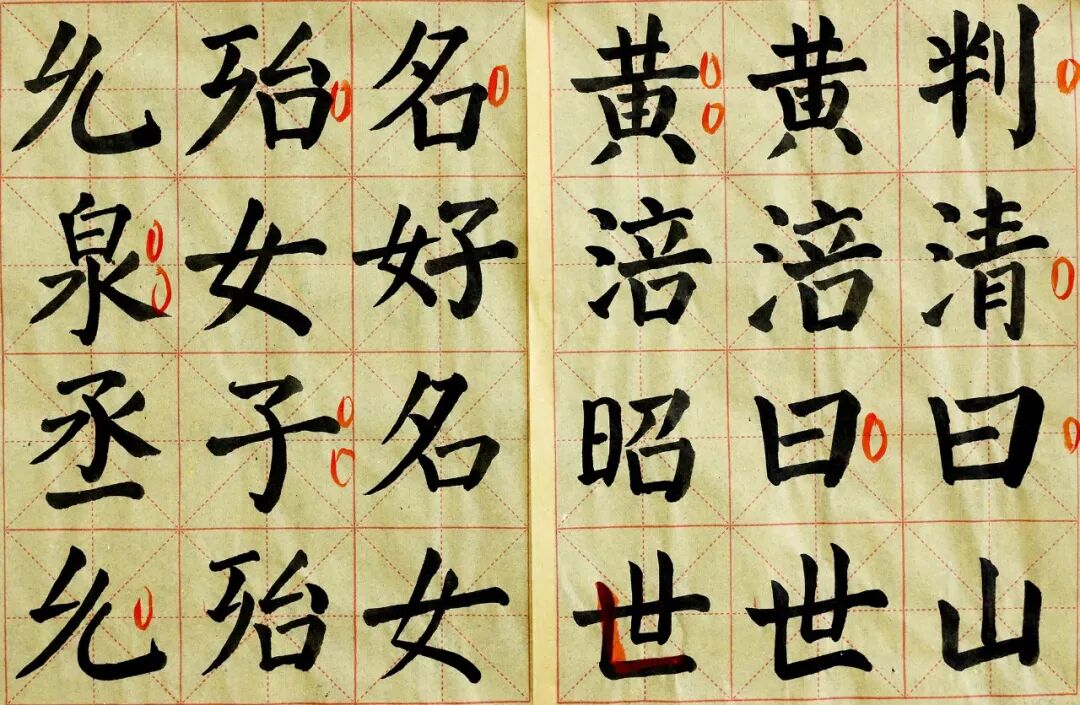 判清曰山
黄涪曰世
黄涪昭世
名好名女
殆女子殆
允泉丞允